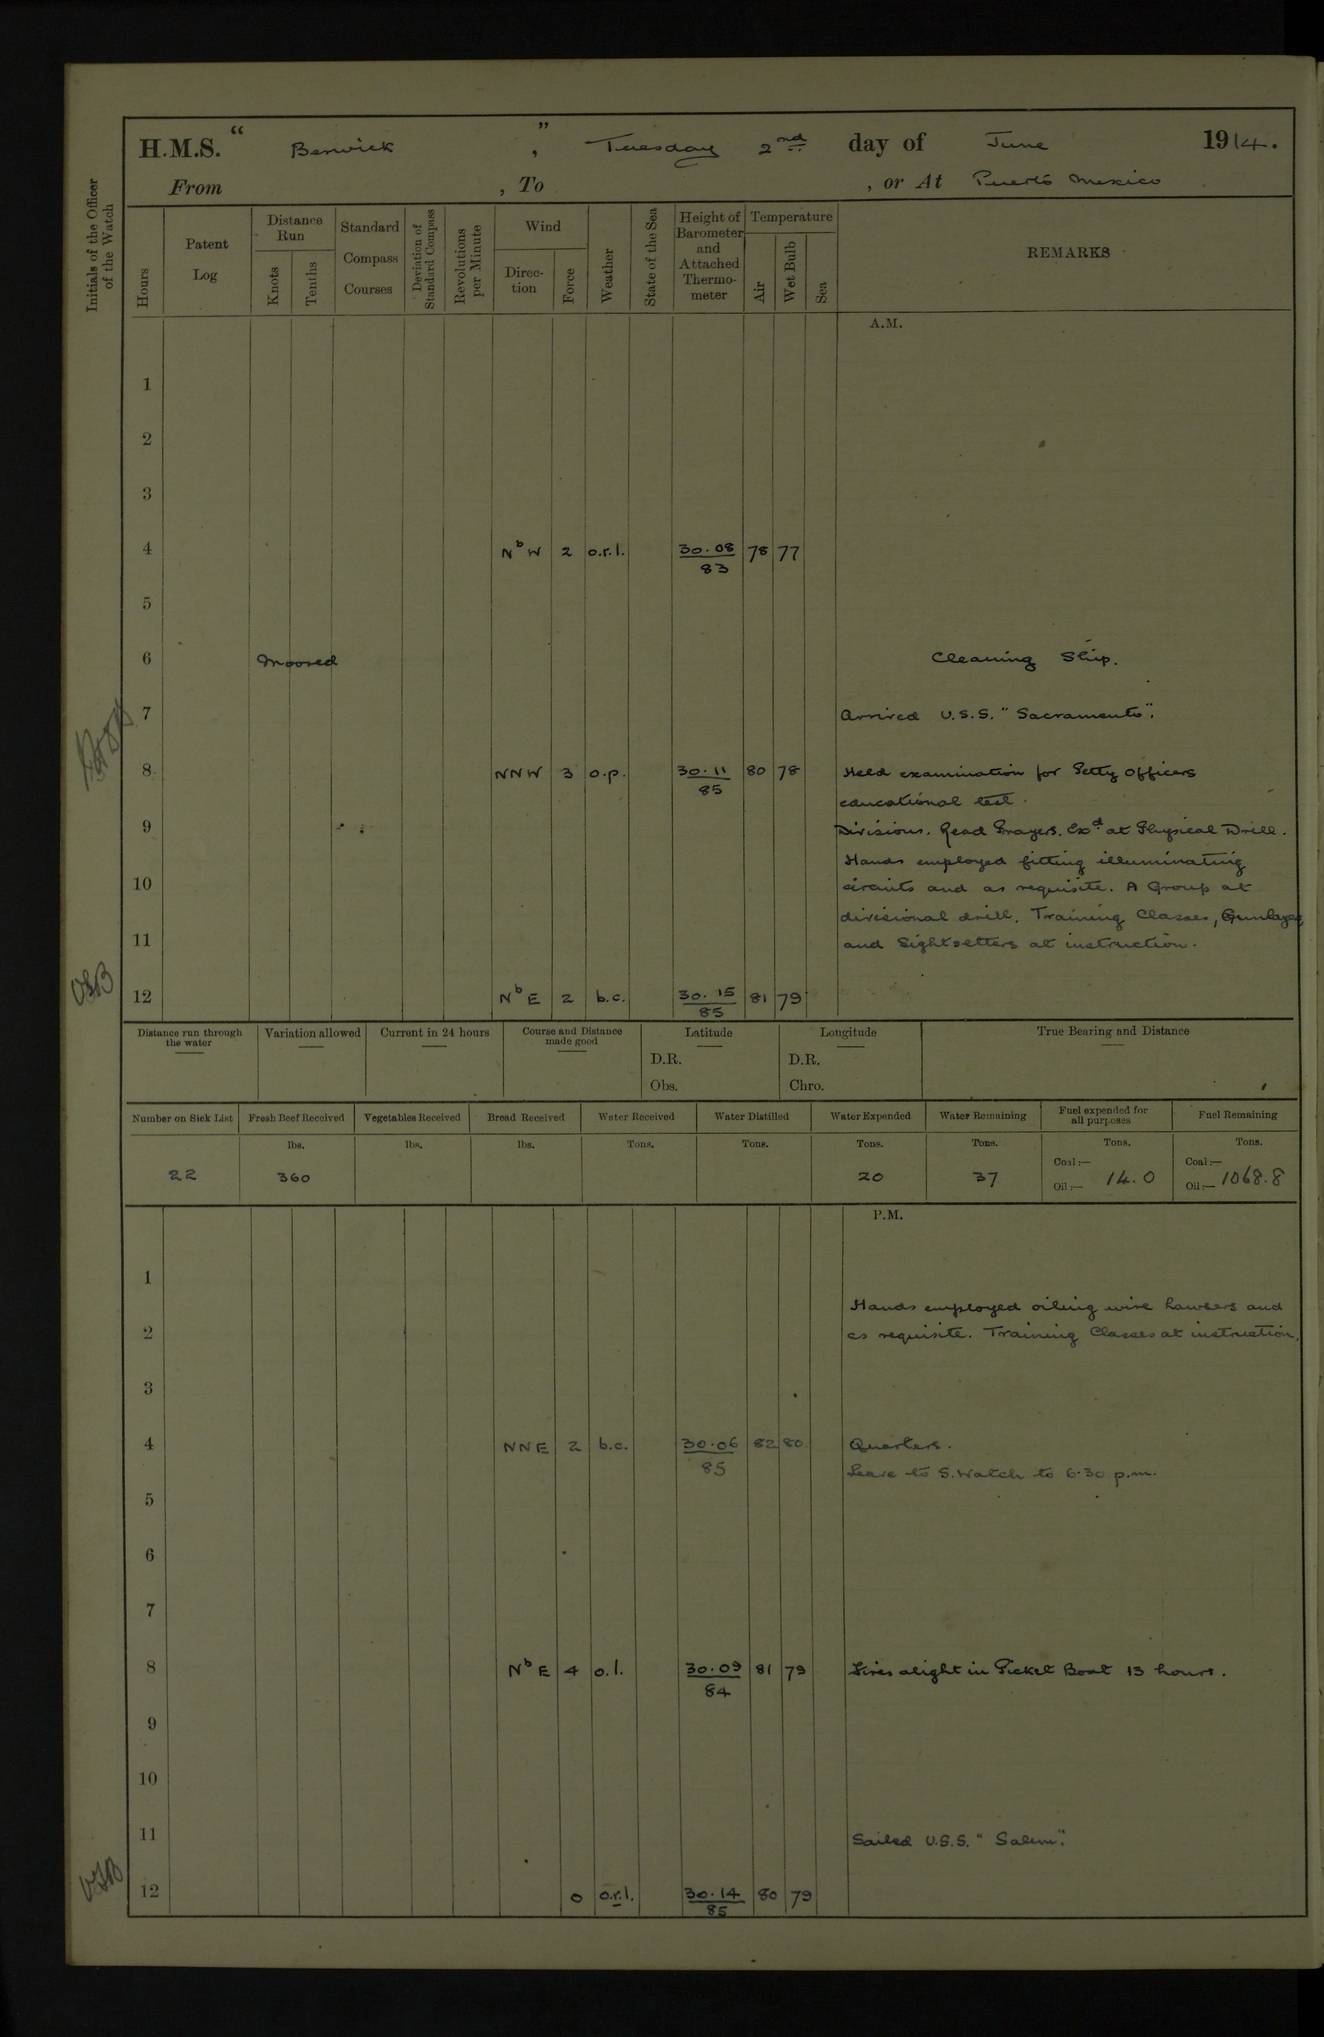 H.M.S. " Berwick ", Tuesday 2nd day of June 1914.
From , To , or At Puerto Mexico
Initials of the Officer of the Watch
Hours
Patent Log
Distance Run
Knots
Tenths
Standard Compass Courses
Deviation of Standard Compass
Revolutions per Minute
Wind
Direction
Force
Weather
State of the Sea
Height of Barometer and Attached Thermometer
Temperature
Air
Wet Bulb
Sea
REMARKS
A.M.
1
2
3
4 NbW 2 o.r.l. 30.08 78 77
83
5
6 Moored Cleaning Ship.
7 Arrived U.S.S. "Sacramento".
8 NNW 3 o.p. 30.11 80 78 Held examination for Petty Officers
85 educational test.
9 Divisions. Read Prayers. Exd at Physical Drill.
Hands employed fitting illuminating
10 circuits and as requisite. A Group at
divisional drill. Training Classes, Gunlayers
11 and Sightsetters at instruction.
VSB 12 NbE 2 b.c. 30.15 81 79
85
Distance run through the water
Variation allowed
Current in 24 hours
Course and Distance made good
Latitude
D.R.
Obs.
Longitude
D.R.
Chro.
True Bearing and Distance
Number on Sick List Fresh Beef Received Vegetables Received Bread Received Water Received Water Distilled Water Expended Water Remaining Fuel expended for all purposes Fuel Remaining
lbs. lbs. lbs. Tons. Tons. Tons. Tons. Tons. Tons.
22 360 20 37 Coal:— Oil:— 14.0 Coal:— Oil:— 1068.8
P.M.
1
Hands employed oiling wire hawsers and
2 as requisite. Training Classes at instruction.
3
4 NNE 2 b.c. 30.06 82 80 Quarters.
85 Leave to S. Watch to 6.30 p.m.
5
6
7
8 NbE 4 o.l. 30.09 81 79 Fires alight in Picket Boat 13 hours.
84
9
10
11 Sailed U.S.S. "Salem".
VSB 12 0 o.r.l. 30.14 80 79
85